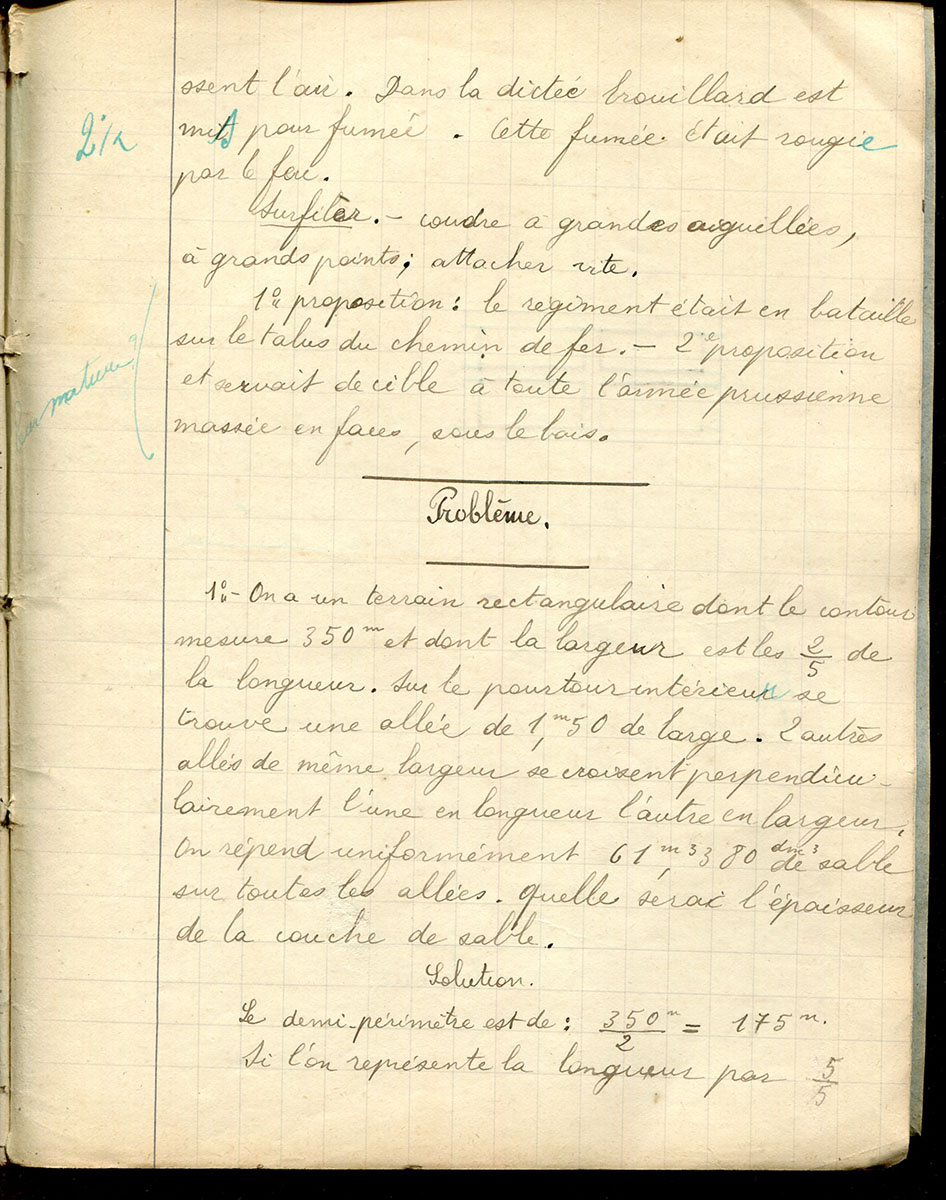 ssent l'air. Dans la dictée brouillard est
2 1/2
mits pour fumée. Cette fumée était rougie
par le feu.
Surfiler. — coudre à grandes aiguillées,
à grands points; attacher vite.
1º proposition: le régiment était en bataille
sur le talus du chemin de fer. — 2e proposition
et servait de cible à toute l'armée prussienne
massée en faces, sous le bois.
nature?
Problême.
1º- On a un terrain rectangulaire dont le contour
mesure 350 m et dont la largeur est les 2/5 de
la longueur. Sur le pourtour intérieur se
trouve une allée de 1,m50 de large. 2 autrès
allés de même largeur se croisent perpendicu-
lairement l'une en longueur l'autre en largeur.
On répend uniformément 61,m3 380 dm3 de sable
sur toutes les allées. quelle serai l'épaisseur
de la couche de sable.
Solution.
Le demi-périmètre est de: 350m/2 = 175 m.
Si l'on représente la longueur par 5/5